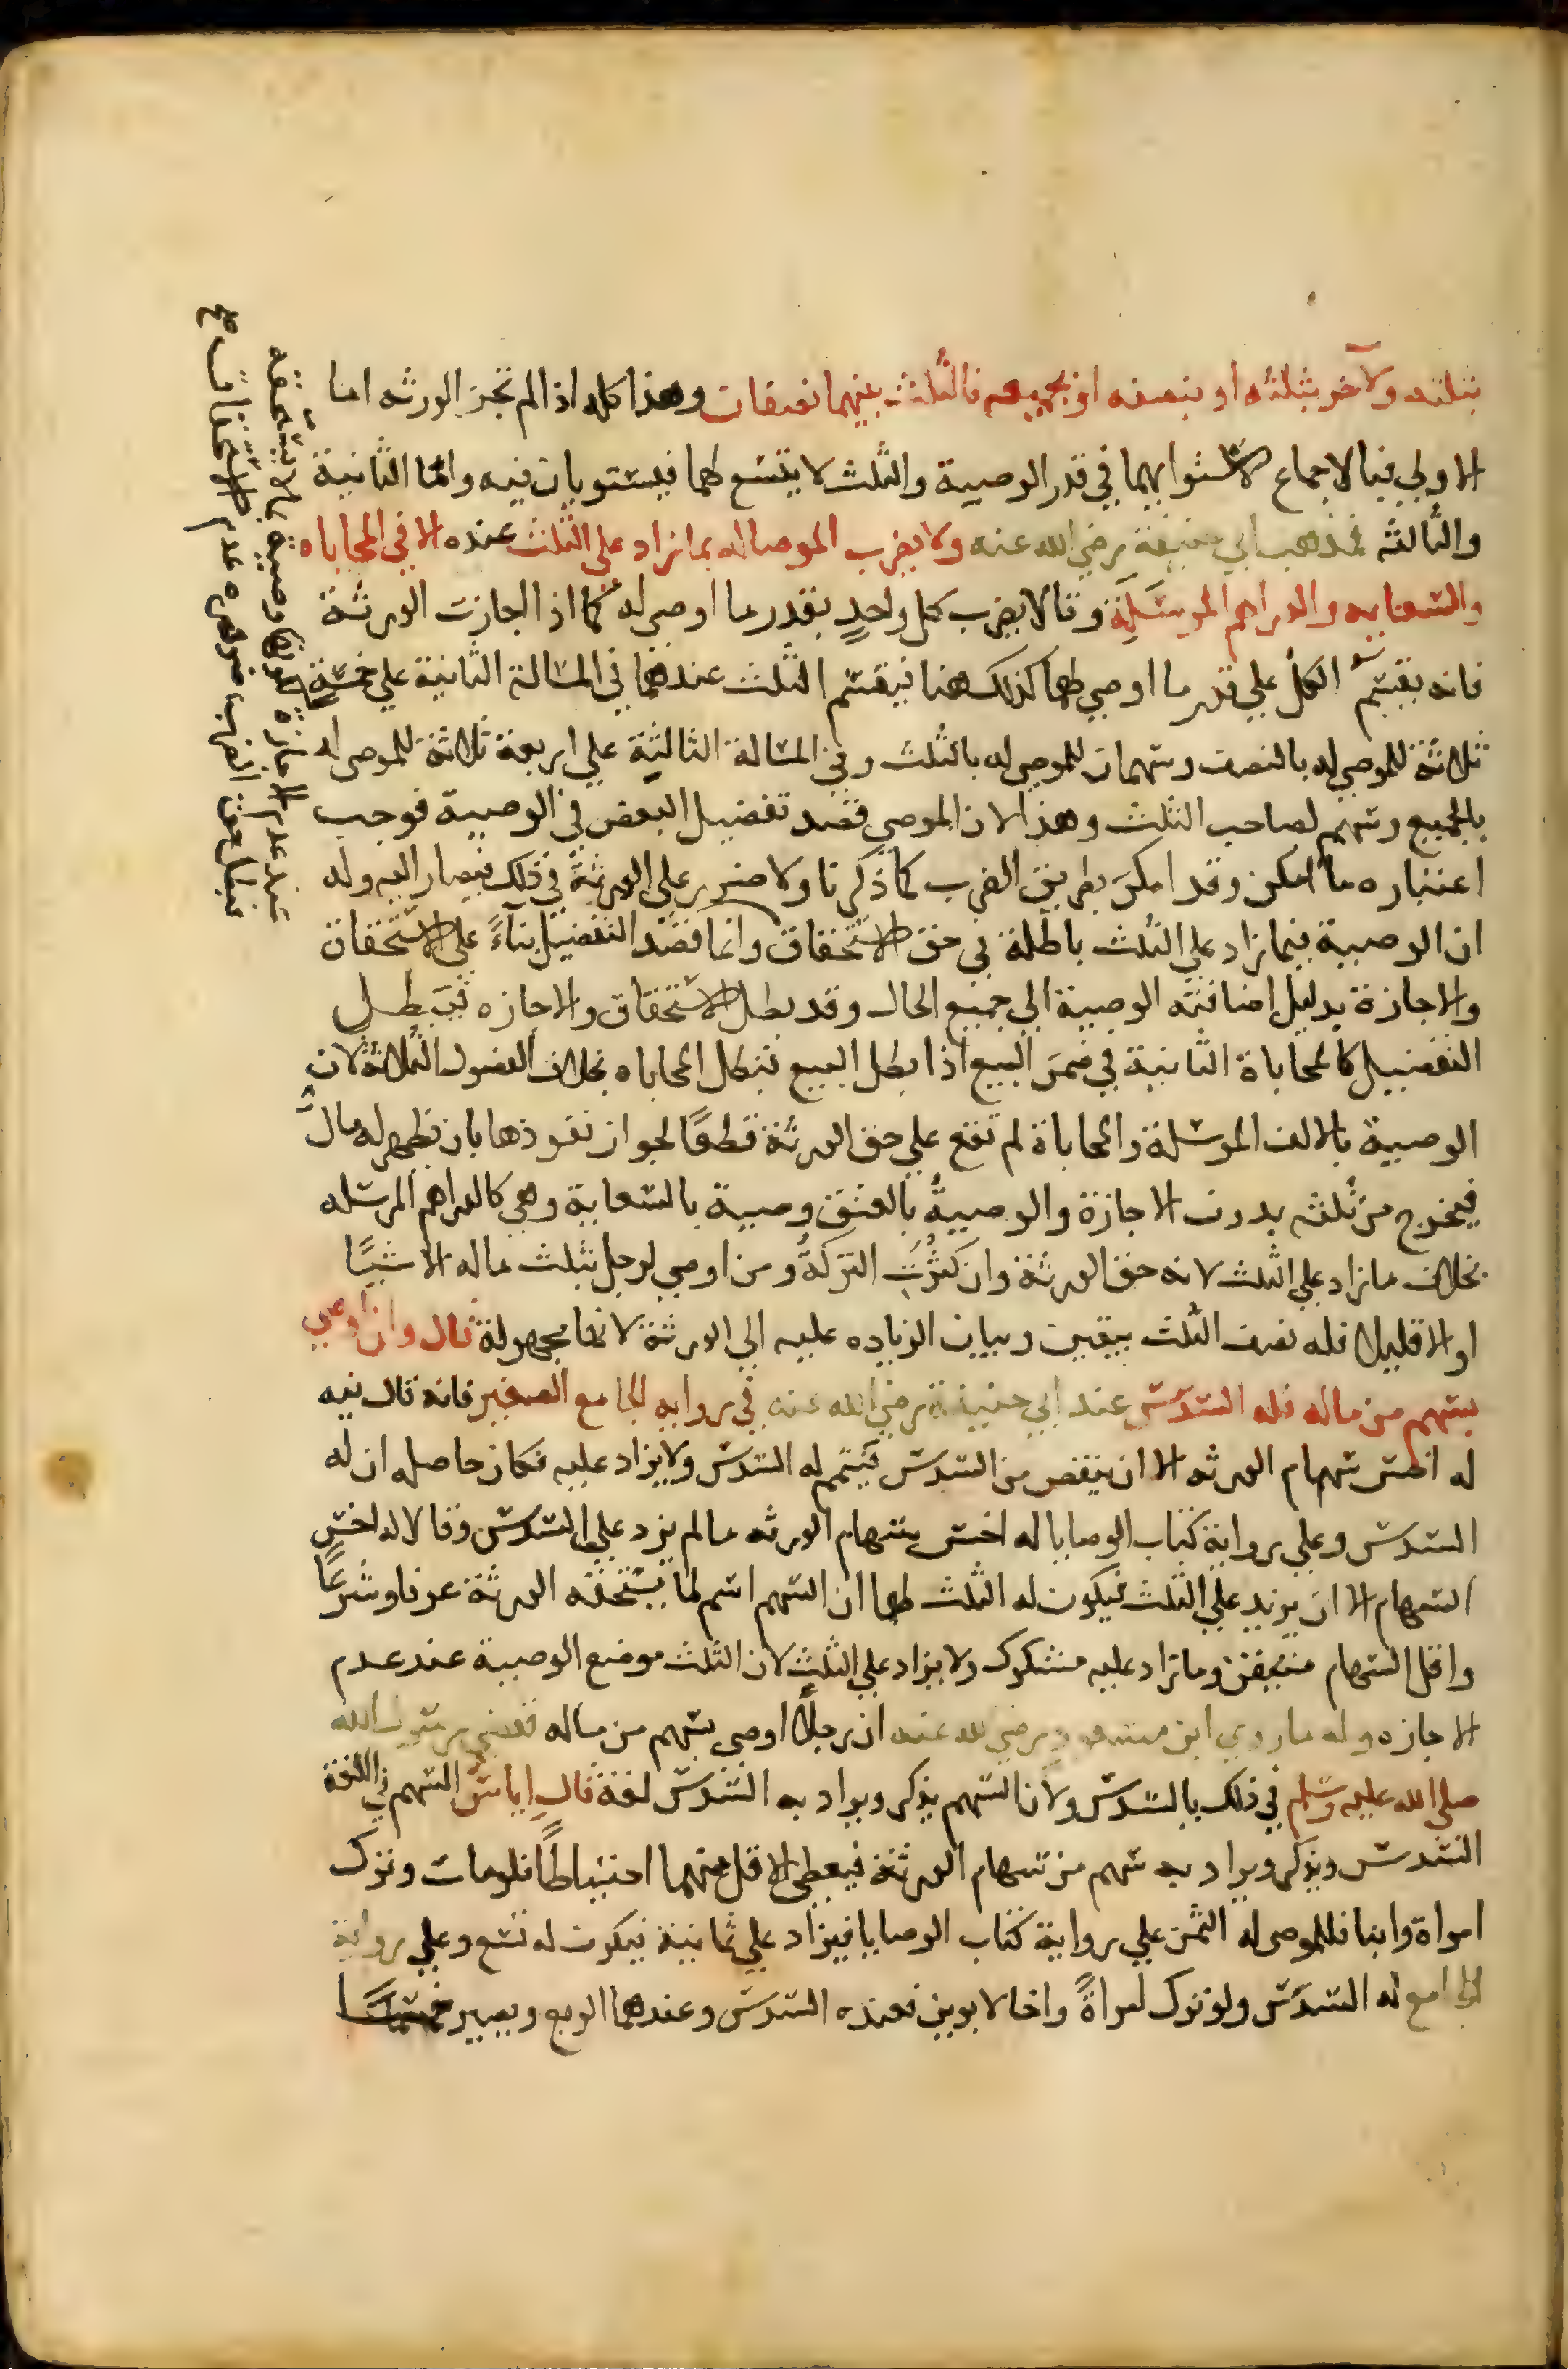 بثلثه ولآخر بثلثه او بنصفه او بجميعه فالثلث بينهما نصفان وهذا كله اذا لم تجز الورثه اما
الاولي فبالاجماع لاستوايهما في قدر الوصية والثلث لا يتسع لهما فيستويان فيه وامّا الثانية
والثالثه فمذهب ابي حنيفة رضي الله عنه ولا يضرب الموصا له بما زاد علي الثلث عنده الا في المحاباه
والسعايه والدراهم المرسَلَة وقالا يضرب كل واحدٍ بقدر ما اوصي له كما اذا اجازت الورثة
فانه يقسم الكل علي قدر ما اوصي لهما كذلك هنا فيقسم الثلث عندهما في المسالة الثانية علي خمسة
ثلاثة للموصي له بالنصف وسهمان للموصي له بالثلث وفي المسالة الثالثة علي اربعة ثلاثة للموصي له
بالجميع وسهم لصاحب الثلث وهذا لان الموصي قصد تفضيل البعض في الوصية فوجب
اعتباره ما امكن وقد امكن بطريق الضرب كما ذكرنا ولا ضرر علي الورثة في ذلك فيصار اليه وله
ان الوصية فيما زاد علي الثلث باطلة في حق الاستحقاق وانما قصد التفضيل بناءً علي الاستحقاق
والاجازة بدليل اضافته الوصية الي جميع الحال وقد بطل الاستحقاق والاجازه فيبطل
التفضيل كالمحاباة الثانية في ضمن البيع اذا بطل البيع تبطل المحاباه بخلاف الفصول الثلاثة لان
الوصية بالالف المرسلة والمحاباة لم تقع علي حق الورثة قطعًا لجواز نفوذها بان يظهر له مال
فيخرج من ثلثه بدون الاجازة والوصيةُ بالعتق وصية بالسعاية وهي كالدراهم المرسله
بخلاف ما زاد علي الثلث لانه حق الورثة وان كثُرت التركةُ ومن اوصي لرجل بثلث ماله الا شيًا
او الا قليلا فله نصف الثلث بيقين وبيان الزياده عليه الي الورثة لانها مجهولة قال وان اوصي
بسهم من ماله فله السدس عند ابي حنيفة رضي الله عنه في روايه الجامع الصغير فانه قال فيه
له اخس سهام الورثه الا ان ينقص من السدس فيتم له السدس ولا يزاد عليه فكان حاصله ان له
السدس وعلي رواية كتاب الوصايا له اخس سهام الورثه ما لم يزد علي السدس وقالا له اخس
السهام الا ان يزيد علي الثلث فيكون له الثلث لهما ان السهم اسم لما يستحقه الورثة عرفا وشرعًا
واقل السهام متيقن وما زاد عليه مشكوك ولا يزاد علي الثلث لان الثلث موضع الوصية عند عدم
الاجازه وله ما روي ابن مسعود رضي الله عنه ان رجلا اوصي بسهم من ماله فقضي رسول الله
صلي الله عليه وسلم في ذلك بالسدس ولان السهم يذكر ويراد به السدس لغة قال اياس السهم في اللغة
السدس ويذكر ويراد به سهم من سهام الورثة فيعطي الاقل منهما احتياطًا فلو مات وترك
امراة وابنا فللموصي له الثمن علي رواية كتاب الوصايا فيزاد علي ثمانية فيكون له تسع وعلي رواية
الجامع له السدس ولو ترك امراةً واخا لابوين فعنده السدس وعندهما الربع ويصير خمسًا
عند عدم الاجازة